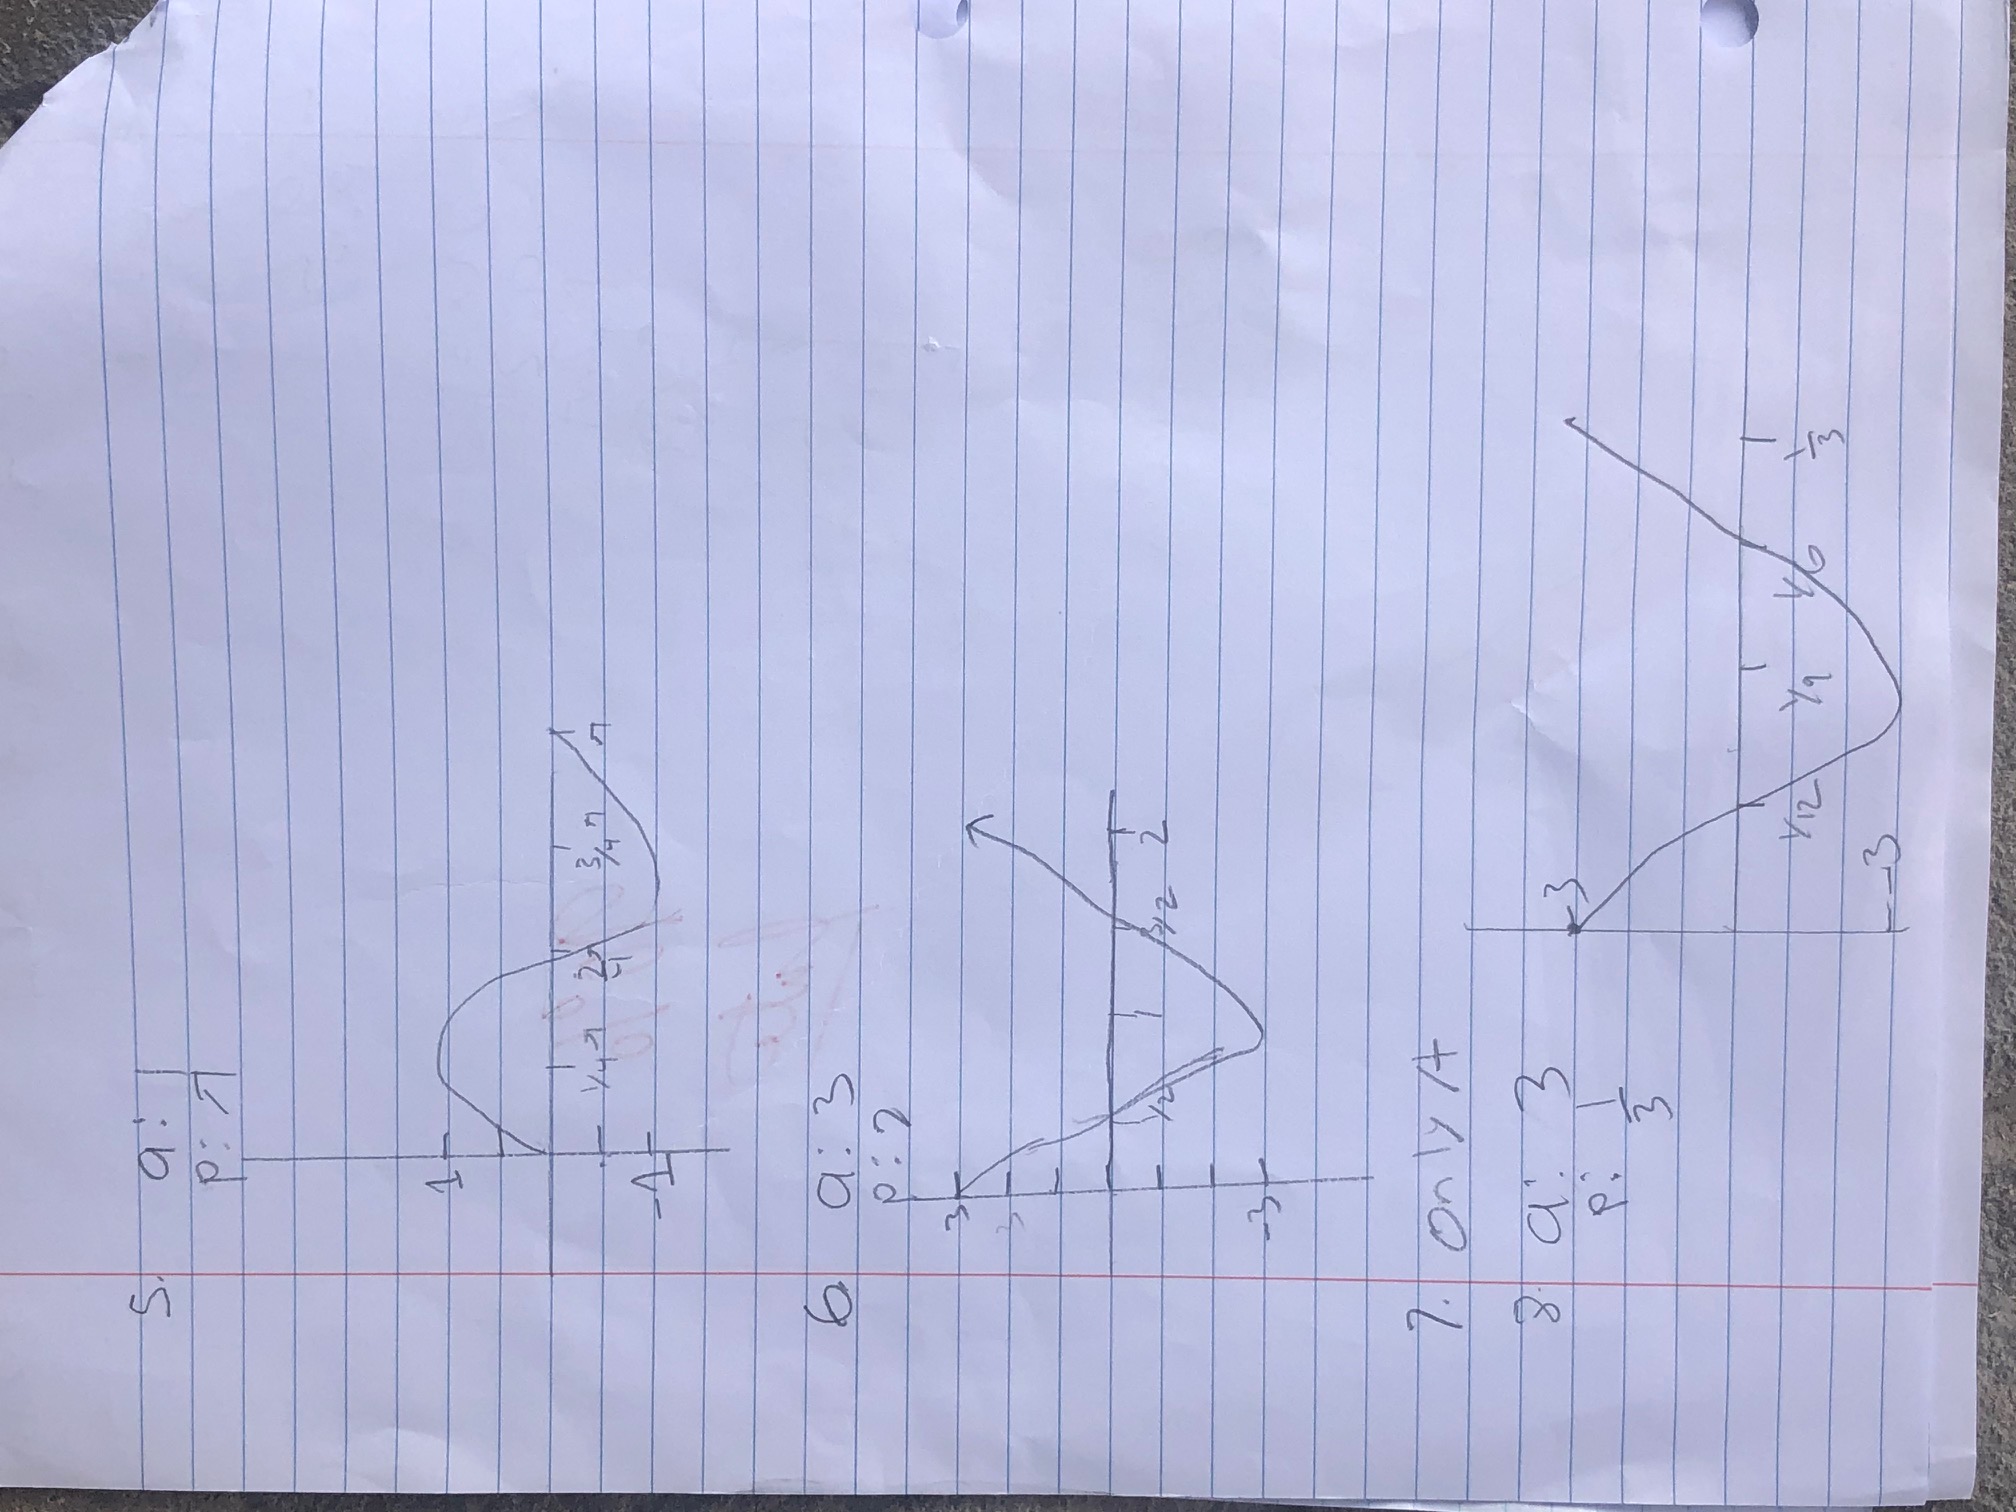 5. a: 1
p: π
1
1/4 π 2/4 π 3/4 π π
-1
6. a: 3
p: 2
3
3
1/2 1 3/2 2
-3
7. only A
8. a: 3
p: 1/3
3
1/12 1/9 1/6 1/3
-3